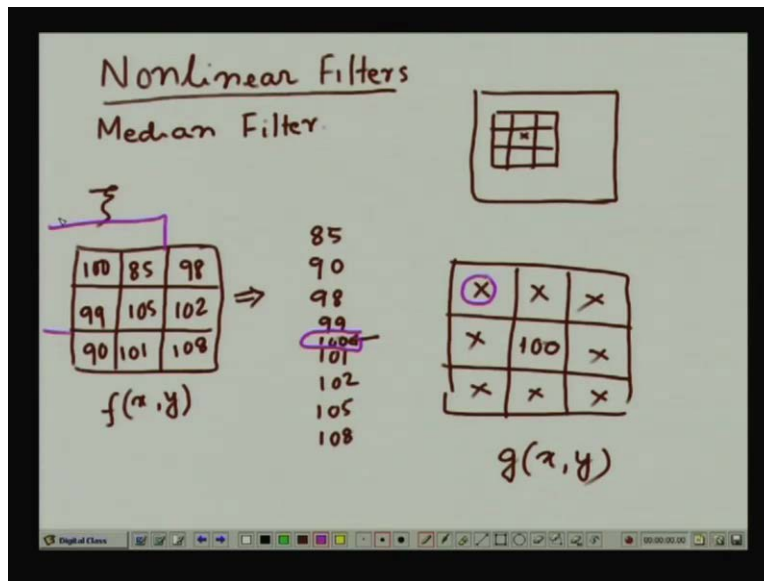 Nonlinear Filters
Median Filter
100 85 98
99 105 102
90 101 108
f(x,y)
⇒
85
90
98
99
100
101
102
105
108
x
x x x
x 100 x
x x x
g(x,y)
Digital Class
00:00:00.00